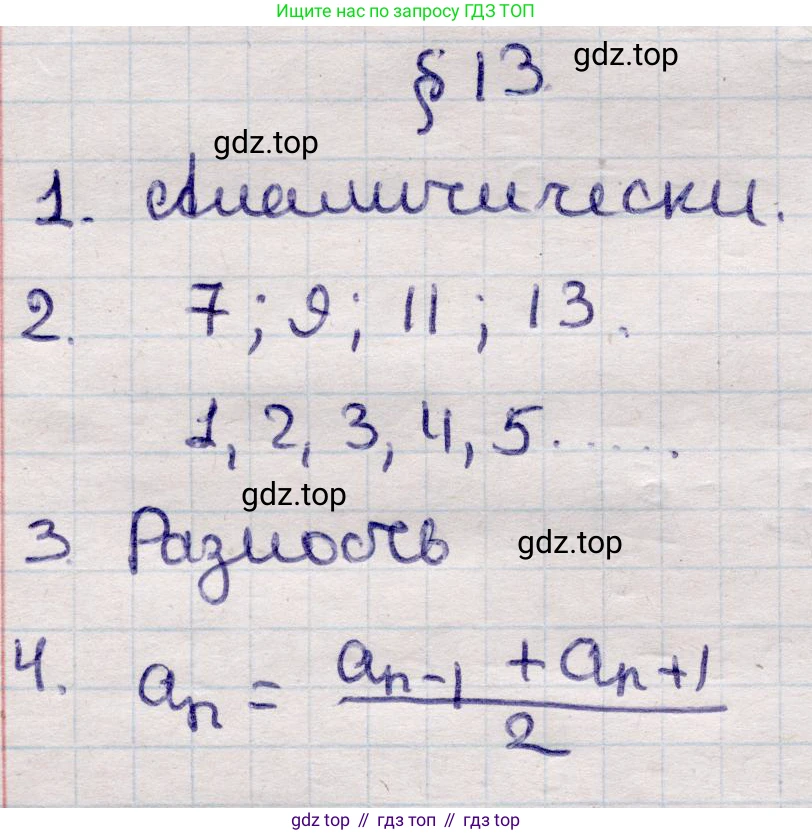 Ищите нас по запросу ГДЗ ТОП
§ 13 gdz.top
gdz.top
1. Аналичически.
2. 7; 9; 11; 13.
1, 2, 3, 4, 5......
gdz.top
3. Разность gdz.top
4. aₙ = (aₙ₋₁ + aₙ₊₁) / 2
gdz top // гдз топ // gdz.top